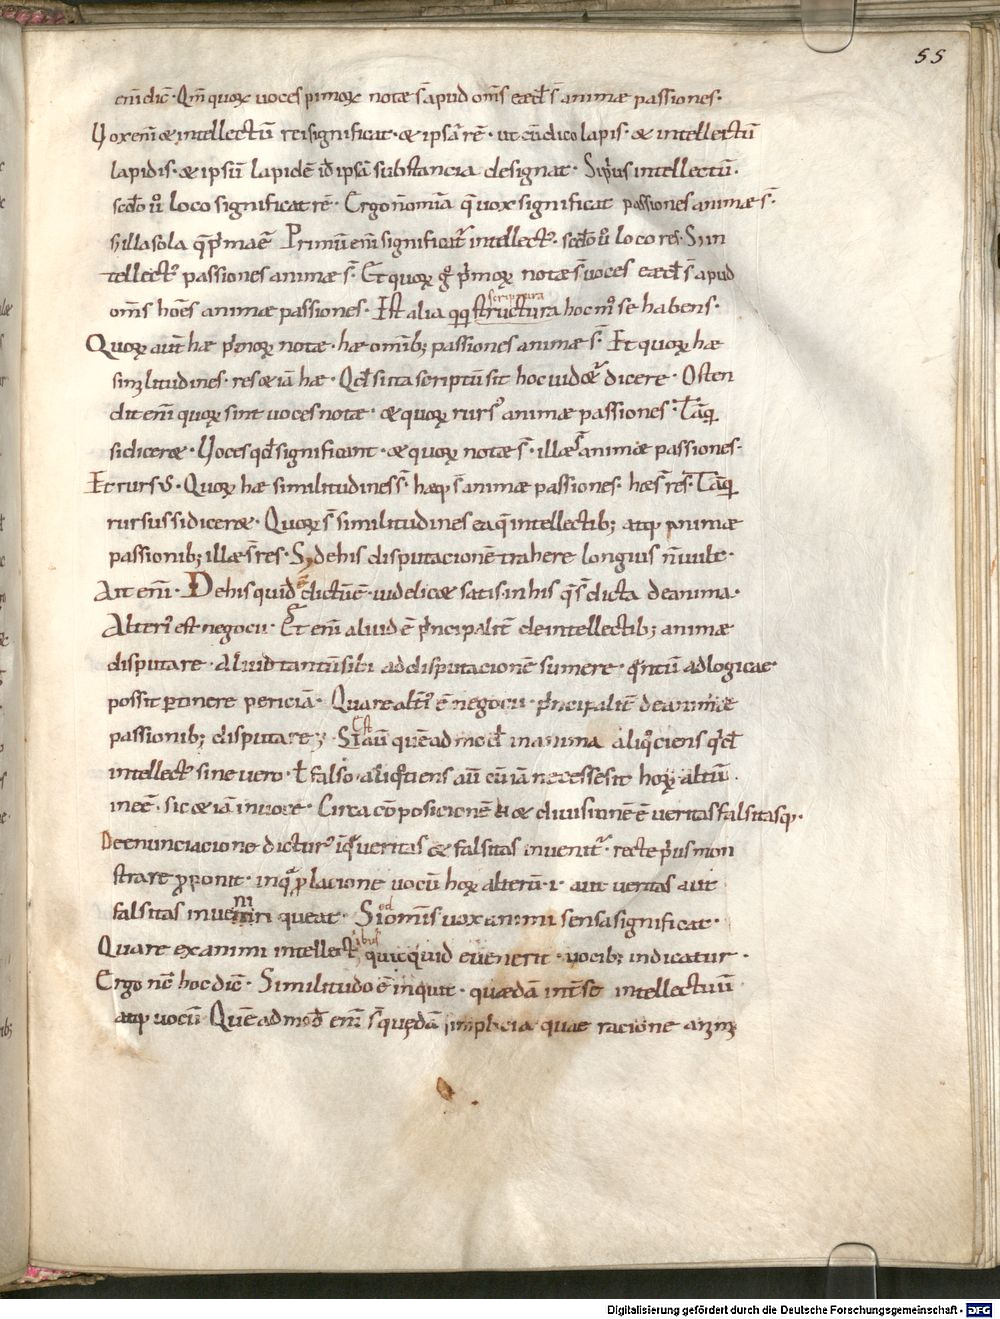 55
eni dic̄· Qm̄ quoꝝ voces pimoꝝ notæ s̄ apud om̄s eæd̄ s̄ animæ passiones·
Vox eni̅ & intellectū rei significat· & ipsā rē· ut cū dico lapis· & intellectū
lapidis· & ipsū lapidē id̄ ipsā substancia designat· Sꝫ prius intellectū·
scdo ū loco significat rē· Ergo n̄ omīa q̄ vox significat passiones animæ s̄·
s; illa sola q̄ p̄ma ē Primū eni̅ significat intellect᷒· scdo ū loco res· S; in
tellect᷒ passiones animæ s̄· Et quoꝝ g̊ p̄moꝝ notæ s̄ voces eæd̄ s̄ apud
om̄s ho̅es animæ passiones· Est alia qꝗ structura hoc m̊ se habens·
scriptura
Quoꝝ aut̄ hæ p̄moꝝ notæ· hæ omnib; passiones animæ s̄· Et quoꝝ hæ
similitudines· res & iā hæ· Qd̄ si ita scriptū sit hoc vid&ur dicere· Osten
dit eni̅ quoꝝ sint voces notæ· & quoꝝ rurs᷒ animæ passiones· Tāq̄
si dicer&· Voces qd̄ significant· & quoꝝ notæ s̄· illæ s̄ animæ passiones·
Et rursus· Quoꝝ hæ similitudines s̄· hæq; s̄ animæ passiones· hæ s̄ res· Tāq̄
rursus si dicer&· Quoꝝ s̄ similitudines ea q̄ in intellectib; atq; animæ
passionib; illæ s̄ res· S; de his disputacionē trahere longius n̄ vult·
Ait eni̅· De his quidē dictū ē· videlic& satis· in his q̄ s̄ dicta de anima·
Alteri᷒ est negocii· Et eni̅ aliud ē p̄ncipalit̄ de intellectib; animæ
disputare· Aliud tantū sibi ad disputacionē sumere· q̄ntū ad logicæ
possit ꝑtinere periciā· Quare alt̄i᷒ ē negocii· p̄ncipalit̄ de animæ
passionib; disputare; Est aū quēad mod̄ in anima aliq̊ciens qd̄
intellect᷒ sine vero· ł falso· aliq̊tiens aū cū iā necesse sit hoꝝ altū·
inēē· sic & iā in voce· Circa cōposicionē & divisionē ē veritas falsitasq;·
De enunciacione dictur᷒ in q̄ veritas & falsitas invenit̄· recte p̄us mon
strare ꝓponit· in q̄ ꝓlacione vocū hoꝝ alterū· i· aut veritas aut
falsitas inveniri queat· Sed om̄is vox animi sensa significat·
Quare ex animi intellectibus quicquid evenerit· vocib; indicatur·
Ergo nc̄ hoc dic̄· Similitudo ē inquit· quædā int̄ se intellectuū
atq; vocū Quēad mod̄ eni̅ s̄ quędā simplicia quae racione animi
Digitalisierung gefördert durch die Deutsche Forschungsgemeinschaft - DFG